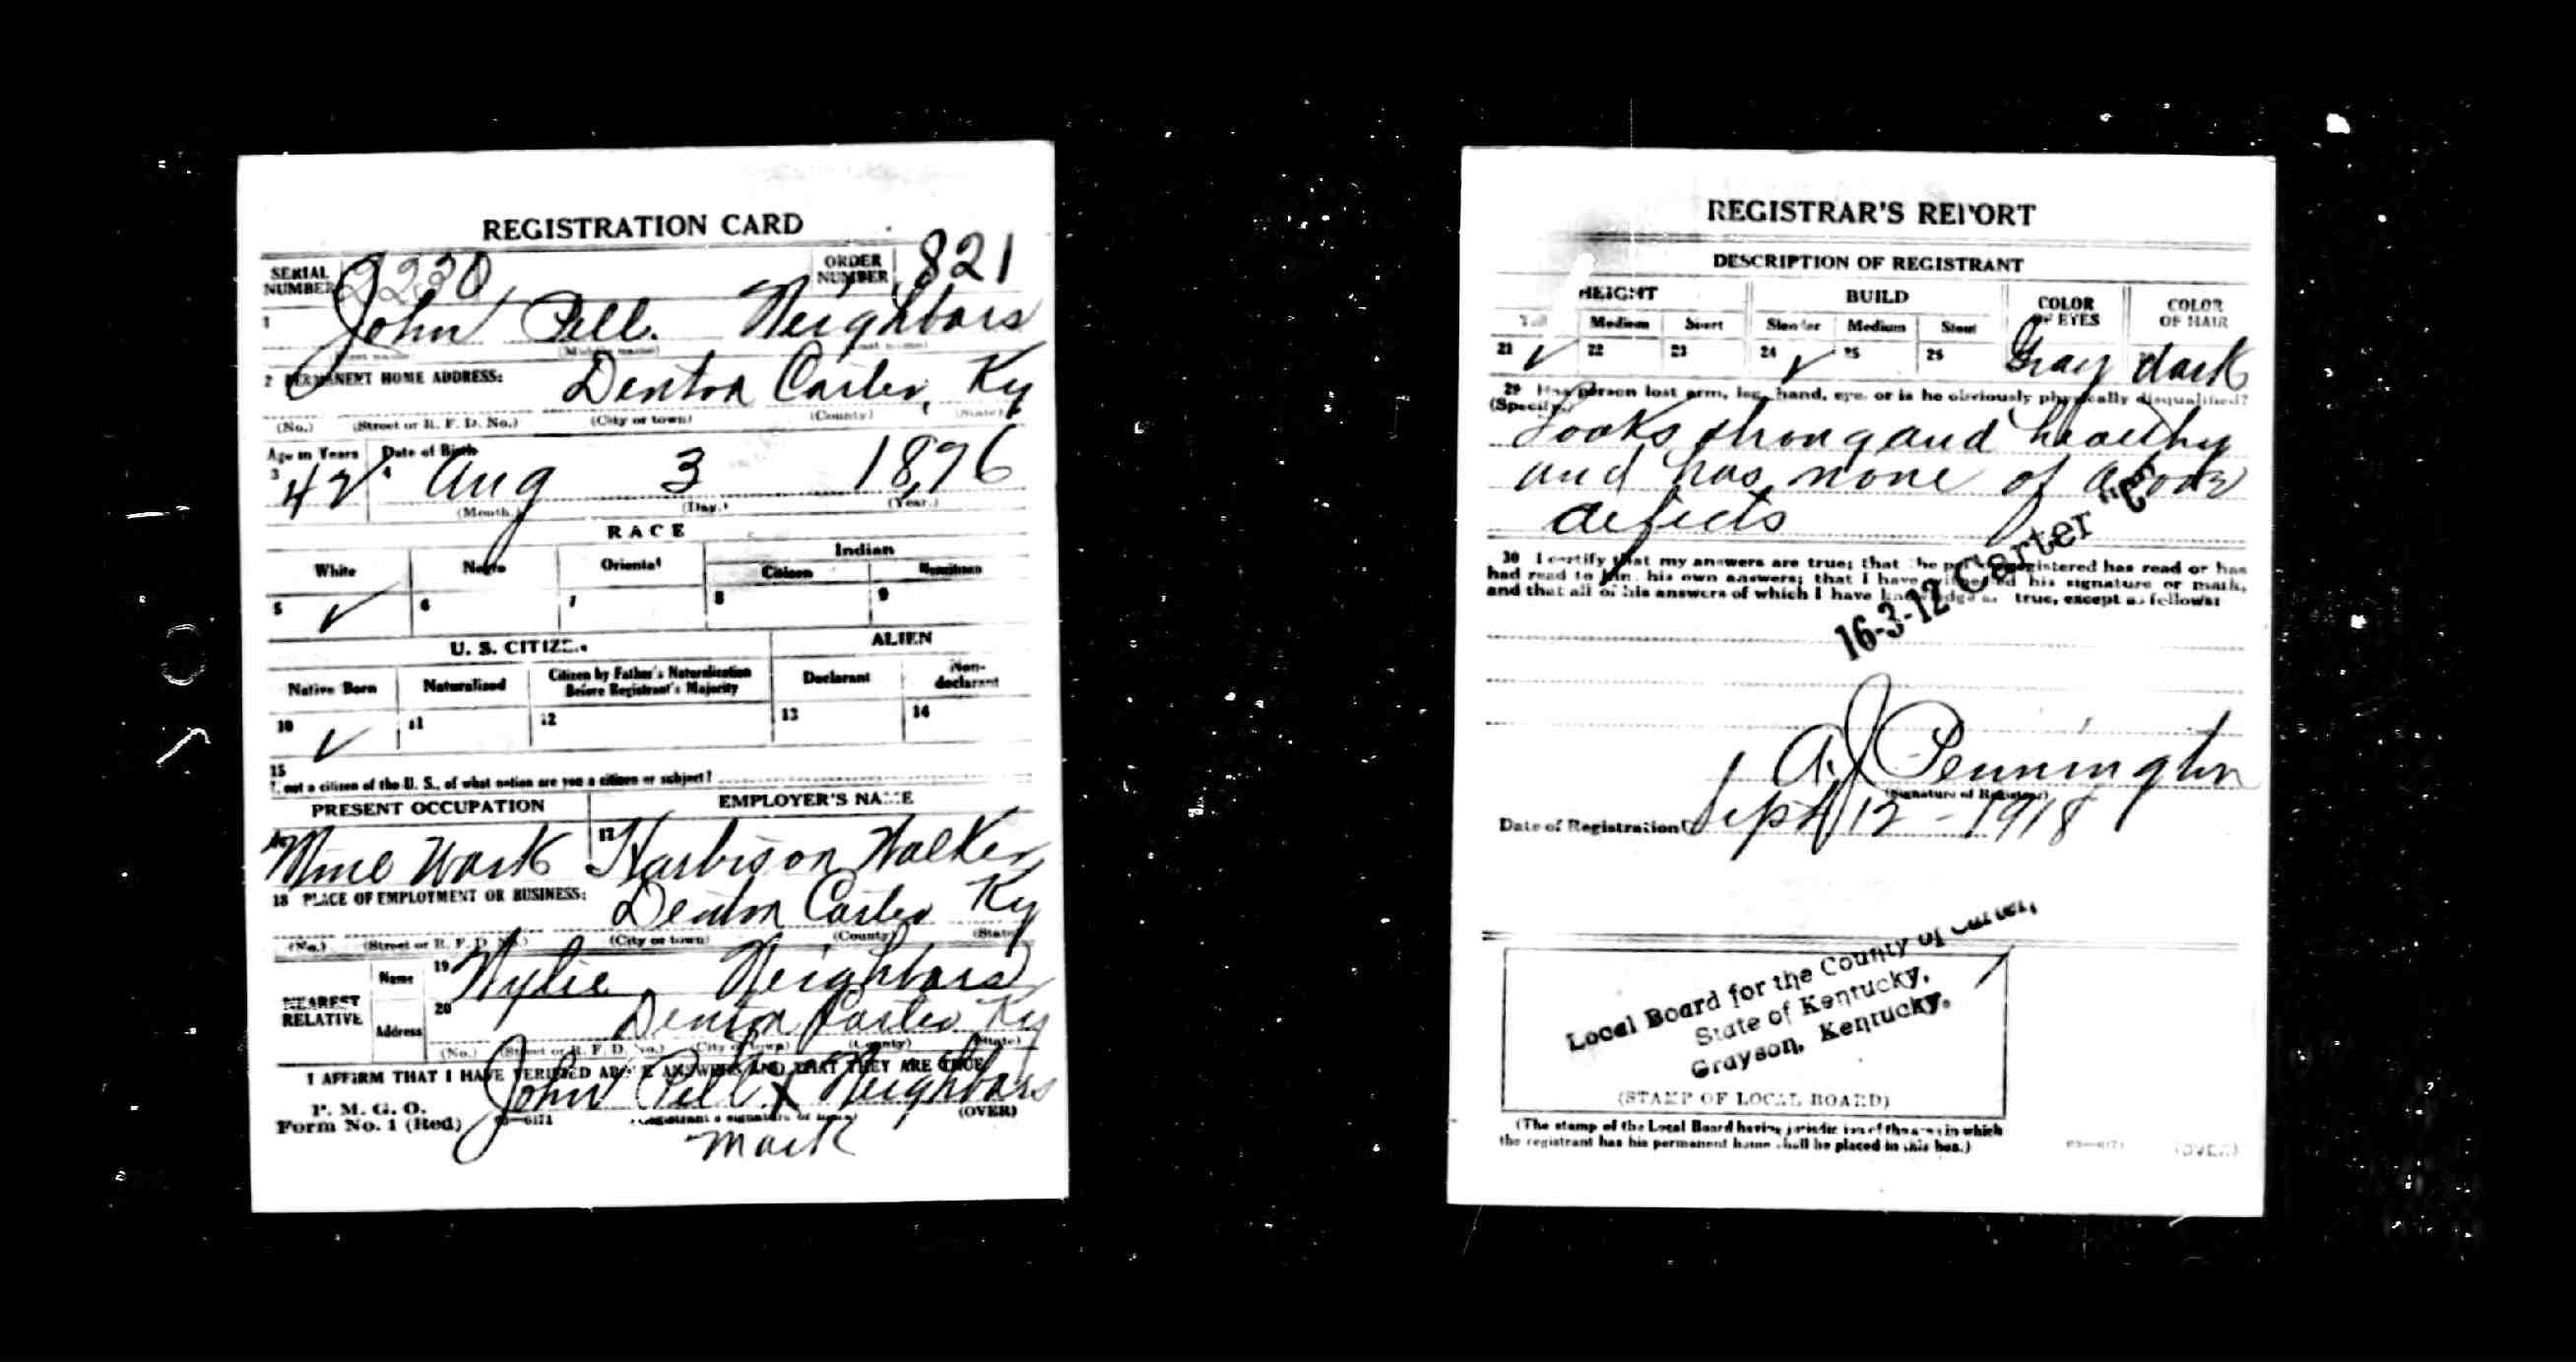 REGISTRATION CARD
SERIAL NUMBER 2230 ORDER NUMBER 821
1 John Pell. Neighbors
(Middle name)
2 PERMANENT HOME ADDRESS: Denton Carter, Ky
(No.) (Street or R. F. D. No.) (City or town) (County) (State)
Age in Years Date of Birth
3 42 4 Aug 3 1876
(Month.) (Day.) (Year.)
RACE
White Negro Oriental Indian
Citizen Noncitizen
5 ✓ 6 7 8 9
U. S. CITIZEN ALIEN
Native Born Naturalized Citizen by Father's Naturalization Before Registrant's Majority Declarant Non-declarant
10 ✓ 11 12 13 14
15
If not a citizen of the U. S., of what nation are you a citizen or subject?
PRESENT OCCUPATION EMPLOYER'S NAME
16 Mine Work 17 Harbison Walker
18 PLACE OF EMPLOYMENT OR BUSINESS: Denton Carter Ky
(No.) (Street or R. F. D. No.) (City or town) (County) (State)
NEAREST RELATIVE Name 19 Wylie Neighbors
Address 20 Denton Carter Ky
(No.) (Street or R. F. D. No.) (City or town) (County) (State)
I AFFIRM THAT I HAVE VERIFIED ABOVE ANSWERS AND THAT THEY ARE TRUE
P. M. G. O.
Form No. 1 (Red) John Pell x Neighbors
(Registrant's signature or mark) (OVER)
mark
REGISTRAR'S REPORT
DESCRIPTION OF REGISTRANT
HEIGHT BUILD COLOR OF EYES COLOR OF HAIR
Tall Medium Short Slender Medium Stout
21 ✓ 22 23 24 ✓ 25 26 Gray dark
29 Has person lost arm, leg, hand, eye, or is he obviously physically disqualified?
(Specify.)
Looks strong and healthy
and has none of above
defects
30 I certify that my answers are true; that the person registered has read or has
had read to him his own answers; that I have witnessed his signature or mark,
and that all of his answers of which I have knowledge are true, except as follows:
16-3-12 Carter "C"
A. J. Pennington
(Signature of Registrar)
Date of Registration Sept 12 - 1918
Local Board for the County of Carter,
State of Kentucky,
Grayson, Kentucky.
(STAMP OF LOCAL BOARD)
(The stamp of the Local Board having jurisdiction of the area in which
the registrant has his permanent home shall be placed in this box.)
03—6171 (OVER)